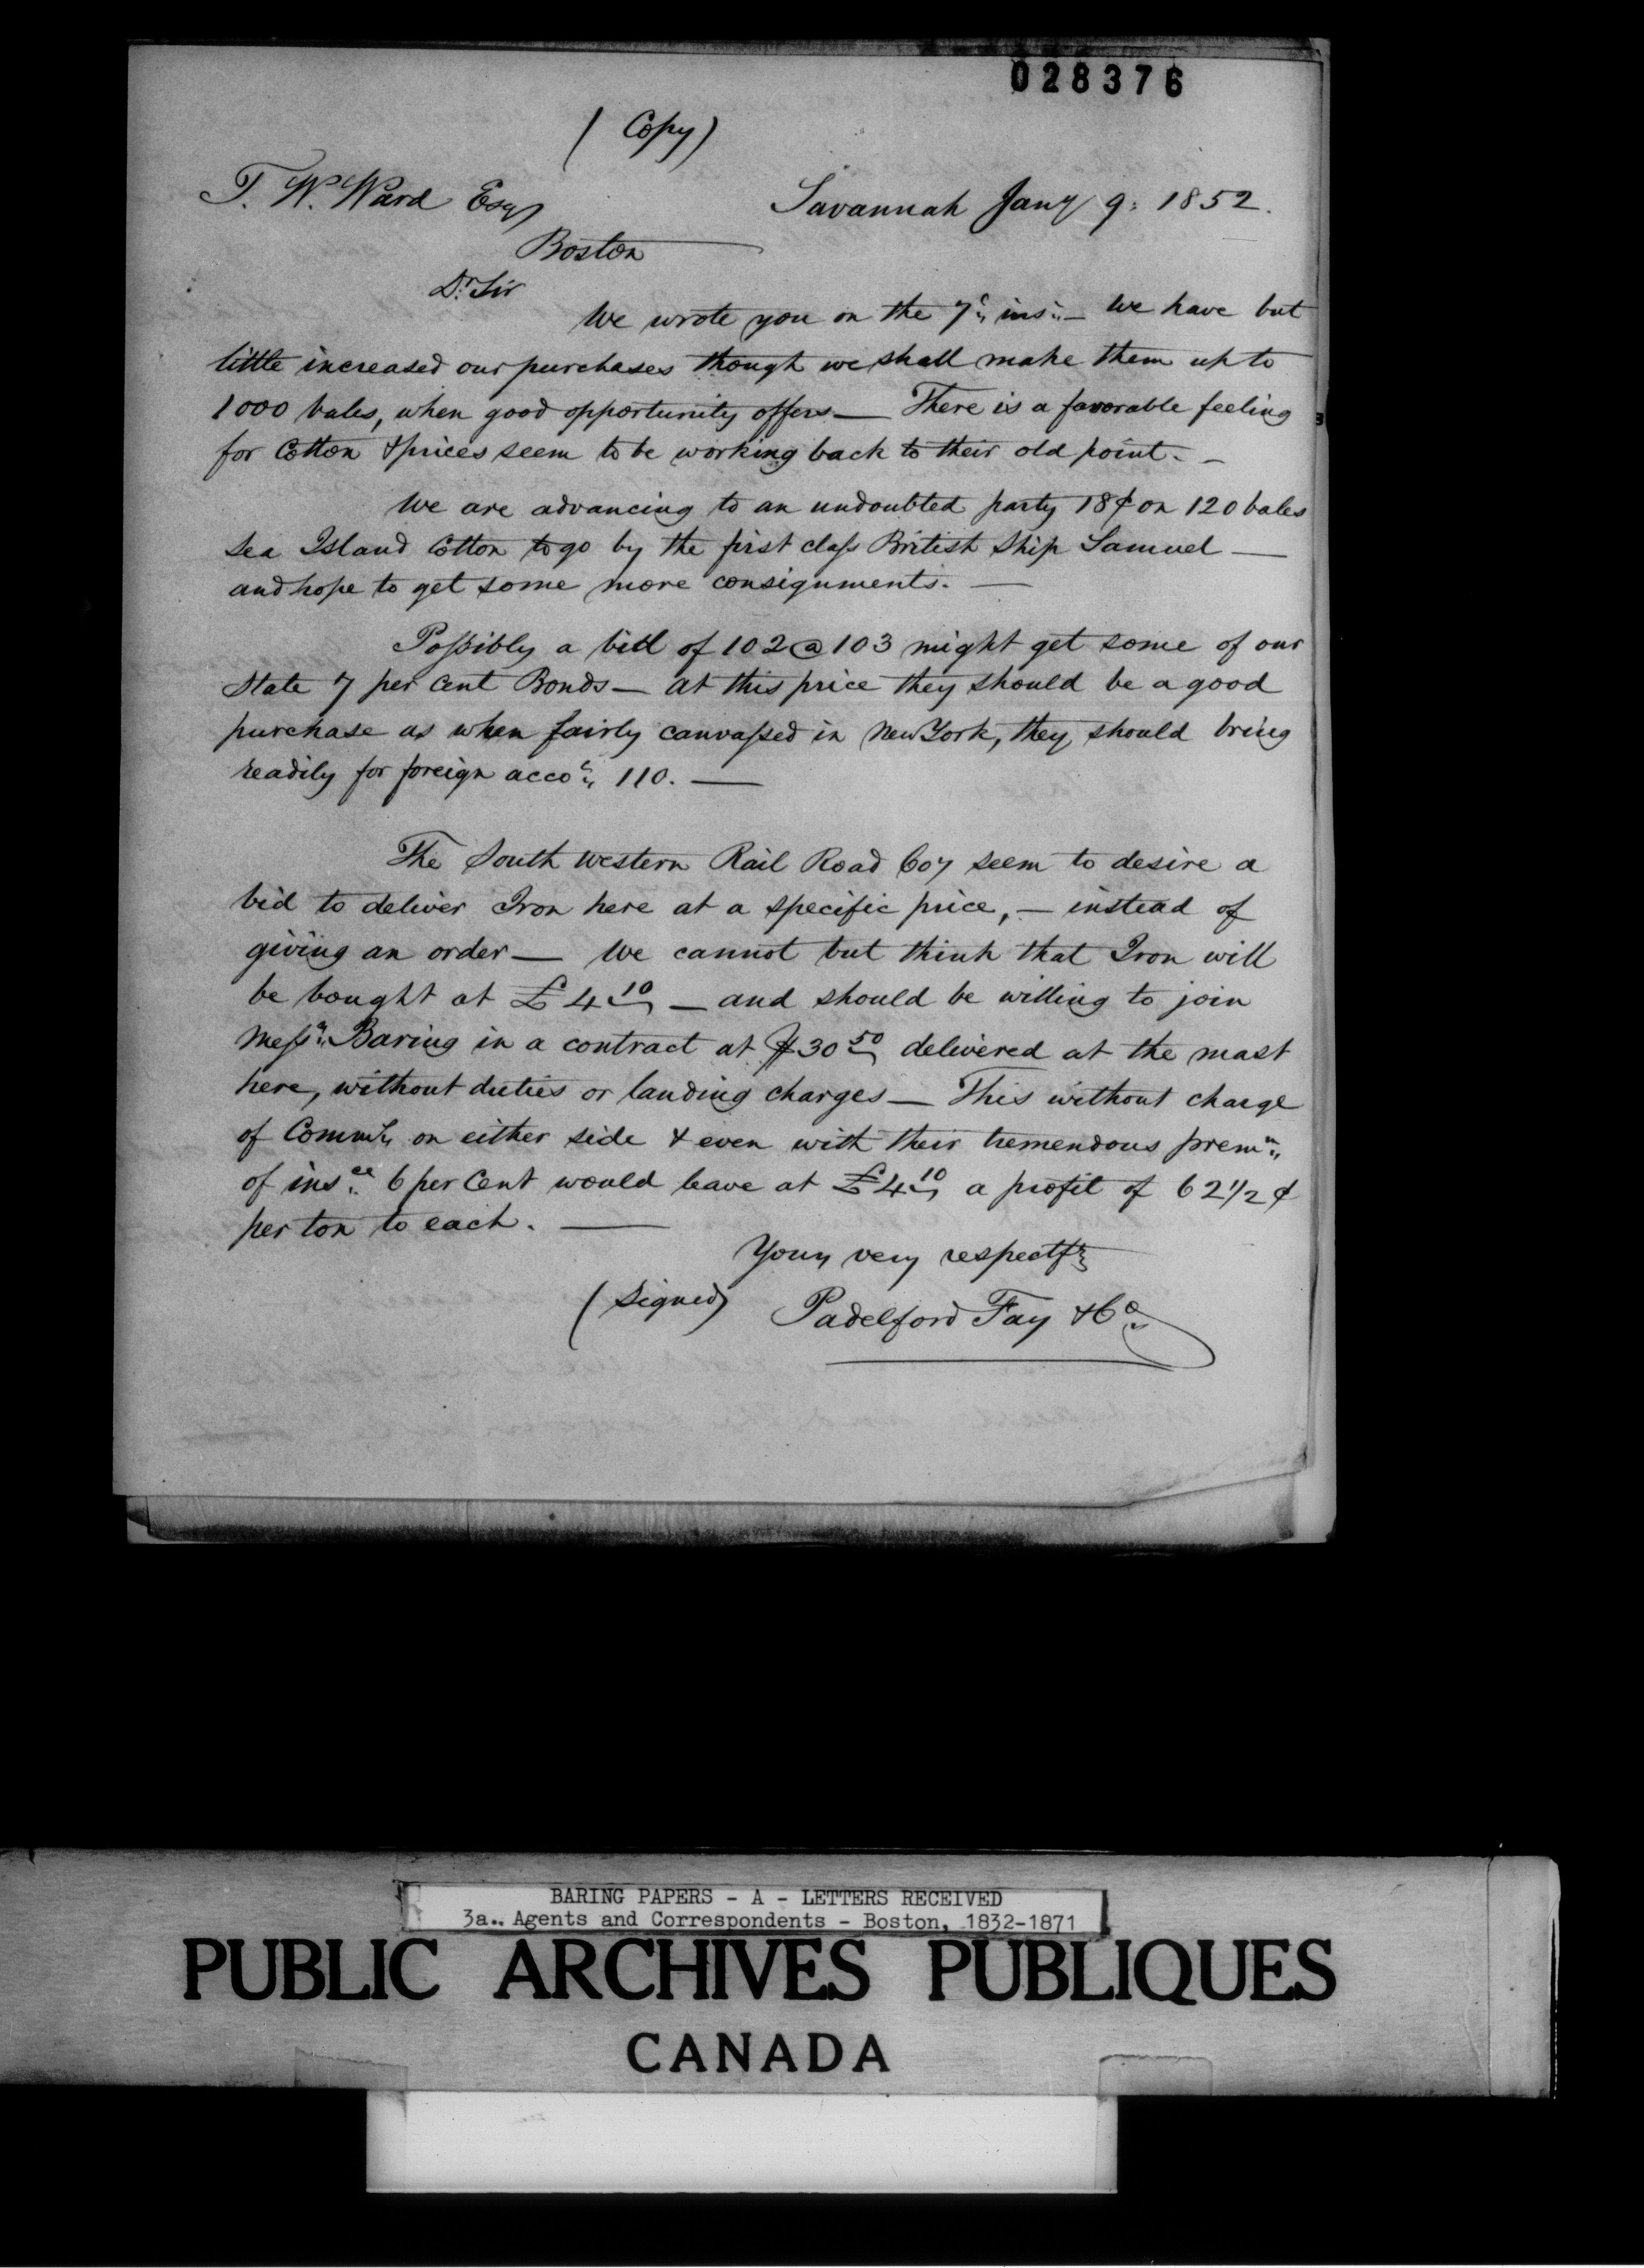 028376
(Copy)
T. W. Ward Esq
Savannah Jany 9: 1852.
Boston
Dr. Sir
We wrote you on the 7th inst — We have but
little increased our purchases though we shall make them up to
1000 bales, when good opportunity offers — There is a favorable feeling
for Cotton & prices seem to be working back to their old point. —
We are advancing to an undoubted party 18¢ on 120 bales
Sea Island Cotton to go by the first class British Ship Samuel —
and hope to get some more consignments. —
Possibly a bid of 102 @ 103 might get some of our
State 7 per Cent Bonds — at this price they should be a good
purchase as when fairly canvassed in New York, they should bring
readily for foreign accot 110. —
The South Western Rail Road Coy seem to desire a
bid to deliver Iron here at a specific price, — instead of
giving an order — We cannot but think that Iron will
be bought at £4 10 — and should be willing to join
Messrs Baring in a contract at $30 50 delivered at the mast
here, without duties or landing charges — This without charge
of Comms on either side & even with their tremendous premm
of insce 6 per Cent would leave at £4 10 a profit of 62 1/2 ¢
per ton to each. —
Yours very respectfy
(Signed) Padelford Fay & Co
BARING PAPERS - A - LETTERS RECEIVED
3a.. Agents and Correspondents - Boston, 1832-1871
PUBLIC ARCHIVES PUBLIQUES
CANADA